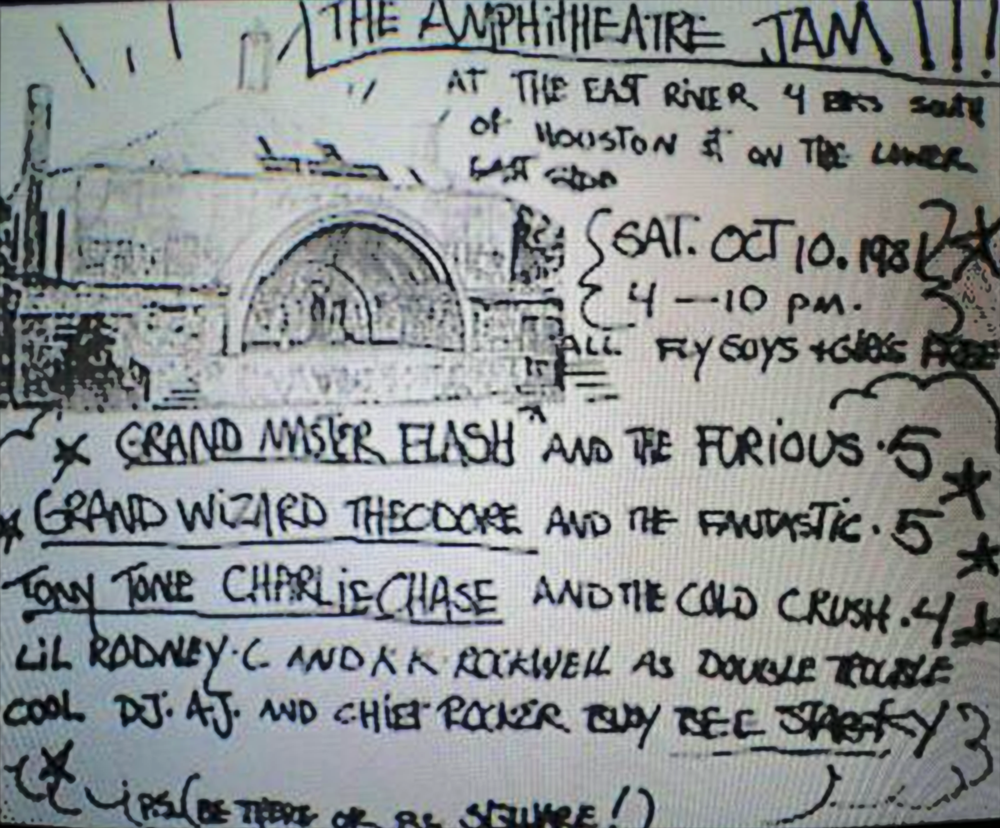 THE AMPHITHEATRE JAM!!!
AT THE EAST RIVER 4 BLKS SOUTH
OF HOUSTON ST ON THE LOWER
EAST SIDE
SAT. OCT 10. 1981
4 — 10 PM.
ALL FLY GUYS + GIRLS FREE
GRAND MASTER FLASH AND THE FURIOUS.5
GRAND WIZARD THEODORE AND THE FANTASTIC.5
TONY TONE CHARLIE CHASE AND THE COLD CRUSH.4
LIL RODNEY.C AND K K ROCKWELL AS DOUBLE TROUBLE
COOL D.J. A.J. AND CHIEF ROCKER BUSY BEE STARSKY
P.S. (BE THERE OR BE SQUARE!)